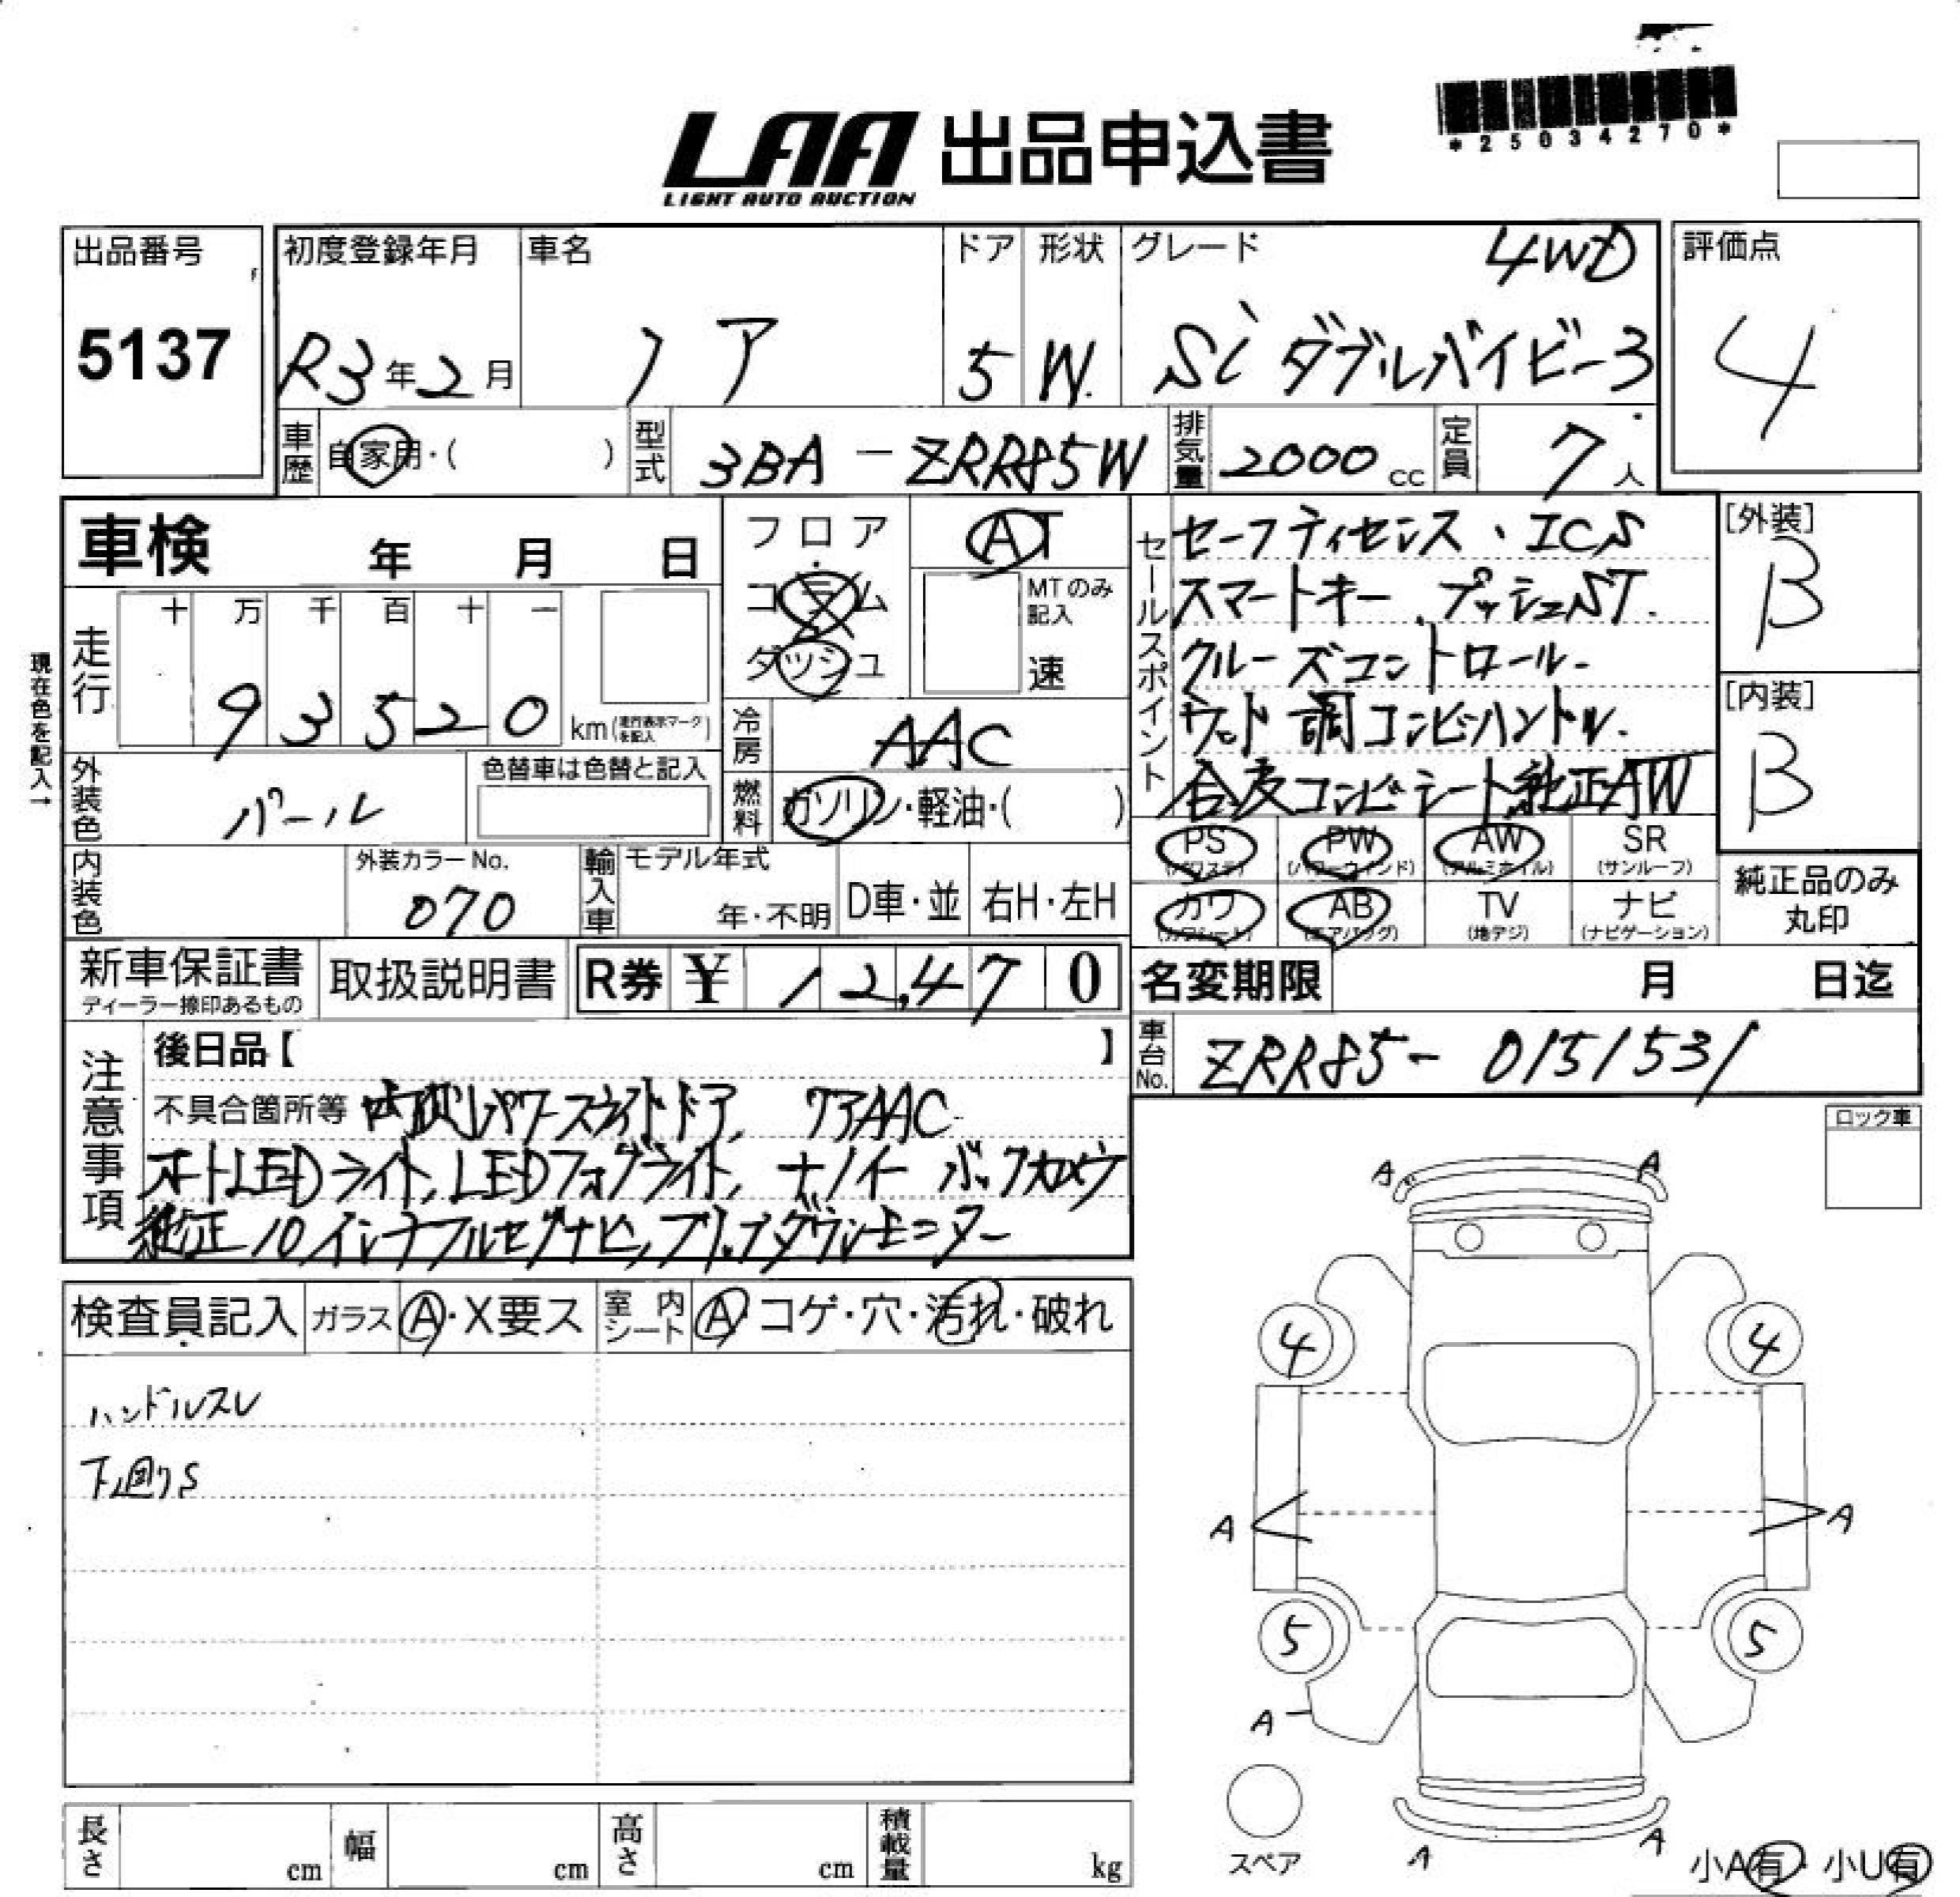 *25034270*
LAA 出品申込書
LIGHT AUTO AUCTION
出品番号
5137
初度登録年月
R3年2月
車名
ノア
ドア
5
形状
W.
グレード
4WD
Si ダブルバイビー3
評価点
4
車歴
自家用・( )
型式
3BA-ZRR85W
排気量
2000cc
定員
7人
車検 年 月 日
フロア
コラム
ダッシュ
AT
MTのみ記入
速
現在色を記入→
走行
十 万 千 百 十 一
93520
km(走行表示マークを記入)
冷房
AAC
外装色
パール
色替車は色替と記入
燃料
ガソリン・軽油・( )
内装色
外装カラーNo.
070
輸入車
モデル年式
年・不明
D車・並
右H・左H
セールスポイント
セーフティセンス、ICS
スマートキー、プッシュST.
クルーズコントロール.
ウッド調コンビハンドル.
合皮コンビシート,純正AW
[外装]
B
[内装]
B
PS
(パワステ)
PW
(パワーウインド)
AW
(アルミホイル)
SR
(サンルーフ)
カワ
(カワシート)
AB
(エアバッグ)
TV
(地デジ)
ナビ
(ナビゲーション)
純正品のみ
丸印
新車保証書
ディーラー捺印あるもの
取扱説明書
R券 ¥ 12,470
名変期限 月 日迄
車台No.
ZRR85-0151531
注意事項
後日品【 】
不具合箇所等 両側パワースライドドア, リアAAC
オートLEDライト, LEDフォグライト, ナノイー バックカメラ
純正10インチフルセグナビ, フリップダウンモニター
ロック車
検査員記入
ガラス A・X要ス
室内シート A・コゲ・穴・汚れ・破れ
ハンドルスレ
下廻りS
A A
4 4
A A
5 5
A
スペア
A A
小A有・小U有
長さ cm
幅 cm
高さ cm
積載量 kg